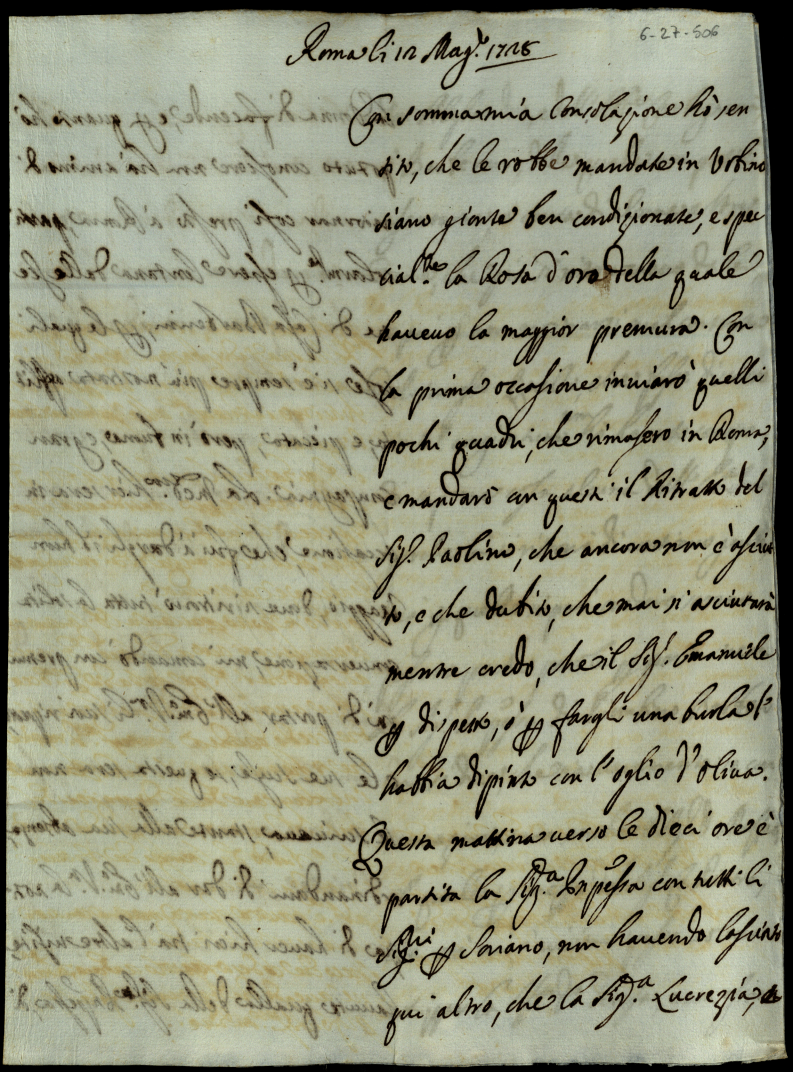 6-27-506
Roma li 12 Mag.o 1728
Con somma mia consolazione hò sen
tito, che le robbe mandate in Vrbino
siano gionte ben condizionate, e spec
ial.te la Rosa d'oro della quale
haveuo la maggior premura. Con
la prima occasione inuiarò quelli
pochi quadri, che rimasero in Roma,
e mandarò con questi il Ritratto del
Sig.r Paolino, che ancora non è asciut
to, e che dubito, che mai si asciutarà
mentre credo, che il Sig.r Emanuele
p dispetto, ò p fargli una burla l'
habbia dipinto con l'oglio d'oliua.
Questa mattina uerso le dieci ore è
partita la Sig.ra con tutti li
Sig.ri p Soriano, non hauendo lasciato
qui altro, che la Sig.ra Lucrezia,